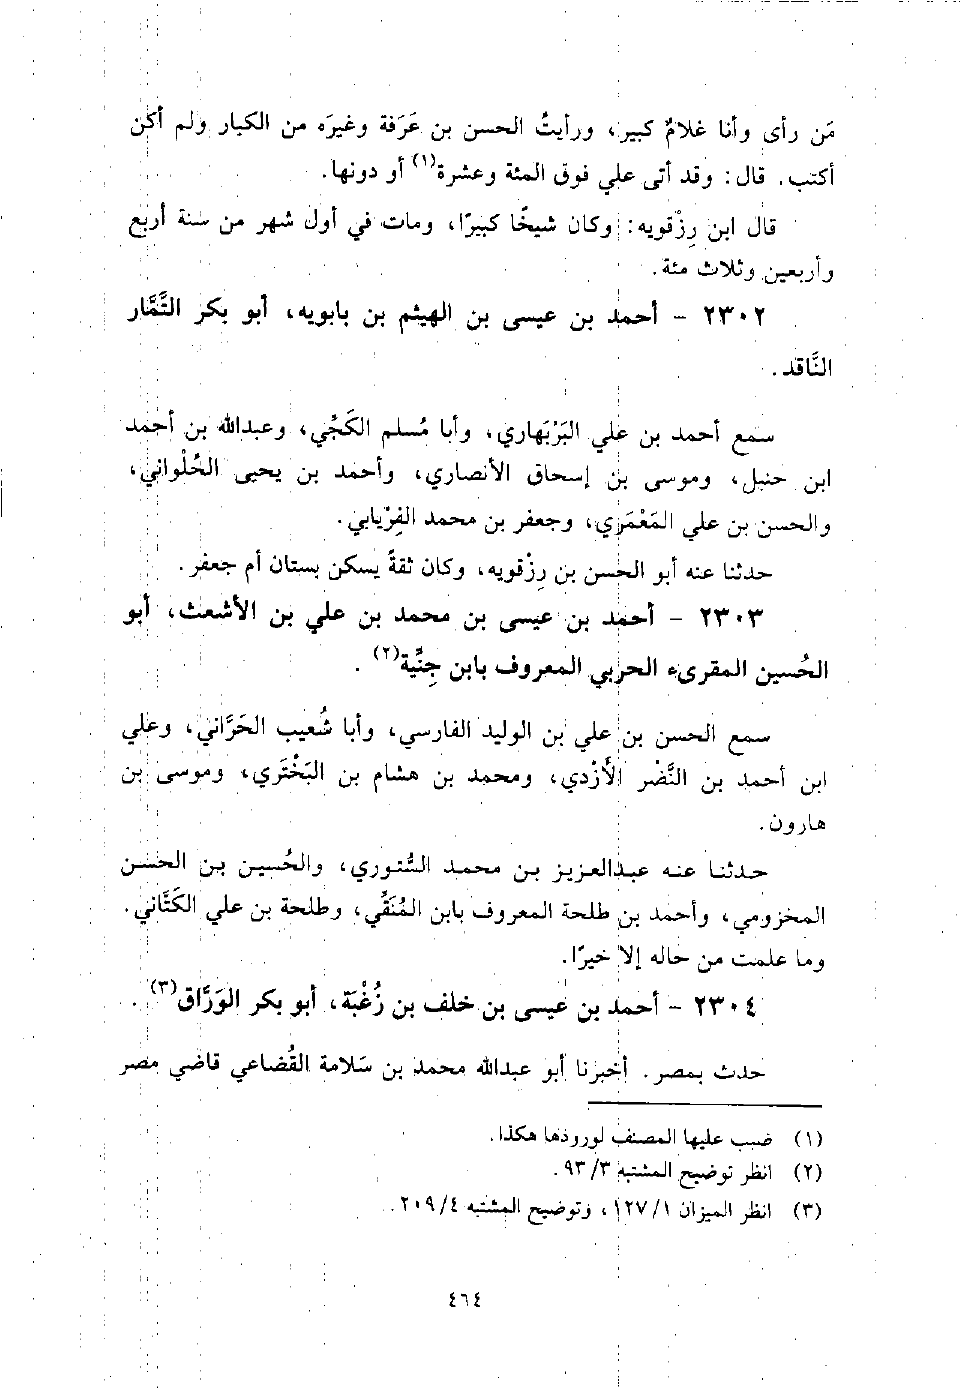 مَن رأى وأنا غلامٌ كبير، ورأيتُ الحسن بن عَرَفة وغيرَه من الكبار ولم أكن
أكتب. قال: وقد أتى علي فوق المئة وعشرة(١) أو دونها.
قال ابن رِزْقويه: وكان شيخًا كبيرًا، ومات في أول شهر من سنة أربع
وأربعين وثلاث مئة.
٢٣٠٢ - أحمد بن عيسى بن الهيثم بن بابويه، أبو بكر التَّمَّار
النَّاقد.
سمع أحمد بن علي البَرْبَهاري، وأبا مُسلم الكَجِّي، وعبدالله بن أحمد
ابن حنبل، وموسى بن إسحاق الأنصاري، وأحمد بن يحيى الحُلْواني،
والحسن بن علي المَعْمَري، وجعفر بن محمد الفِرْيابي.
حدثنا عنه أبو الحسن بن رِزْقويه، وكان ثقةً يسكن بستان أم جعفر.
٢٣٠٣ - أحمد بن عيسى بن محمد بن علي بن الأشعث، أبو
الحُسين المقرىء الحربي المعروف بابن جِنِّية(٢).
سمع الحسن بن علي بن الوليد الفارسي، وأبا شُعيب الحَرَّاني، وعلي
ابن أحمد بن النَّضْر الأَزْدي، ومحمد بن هشام بن البَخْتَري، وموسى بن
هارون.
حدثنا عنه عبدالعزيز بن محمد السُّتوري، والحُسين بن الحسن
المخزومي، وأحمد بن طلحة المعروف بابن المُنَقِّي، وطلحة بن علي الكَتَّاني.
وما علمت من حاله إلا خيرًا.
٢٣٠٤ - أحمد بن عيسى بن خلف بن زُغْبَة، أبو بكر الوَرَّاق(٣).
حدث بمصر. أخبرنا أبو عبدالله محمد بن سَلامة القُضاعي قاضي مصر
(١) ضبب عليها المصنف لورودها هكذا.
(٢) انظر توضيح المشتبه ٣/ ٩٣.
(٣) انظر الميزان ١/ ١٢٧، وتوضيح المشتبه ٤/ ٢٠٩.
٤٦٤